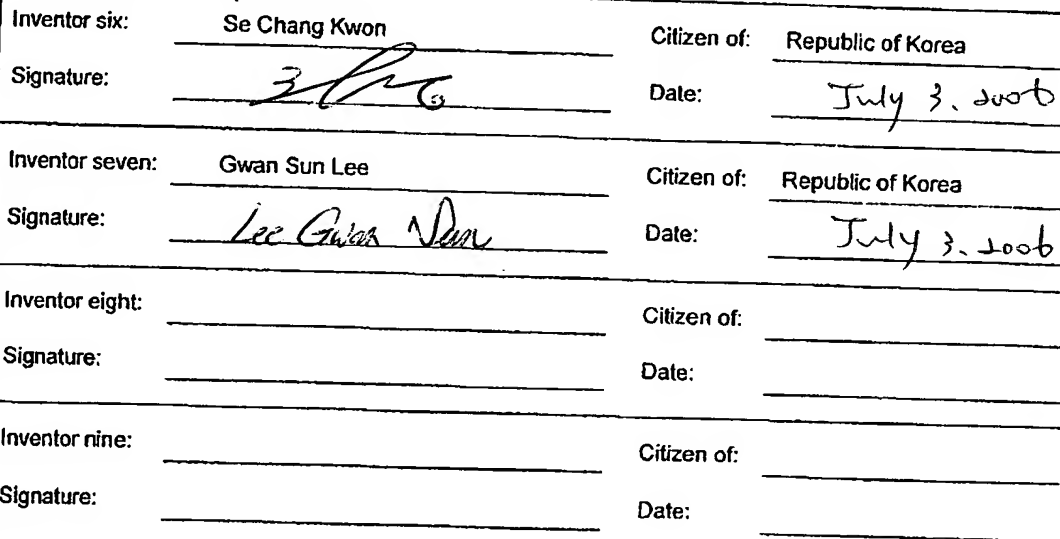 Inventor six: Se Chang Kwon Citizen of: Republic of Korea
Signature: Date: July 3. 2006
Inventor seven: Gwan Sun Lee Citizen of: Republic of Korea
Signature: Lee Gwan Sun Date: July 3. 2006
Inventor eight: Citizen of:
Signature: Date:
Inventor nine: Citizen of:
Signature: Date: